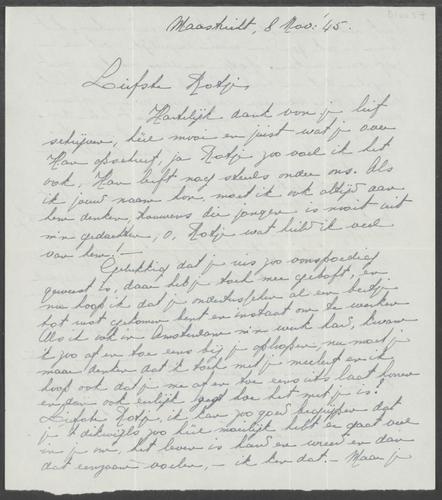 Maastricht, 8 Nov. '45.
Liefste Rotje,
Hartelijk dank voor je lief
schrijven, hoe mooi en juist wat je over
Han opschreef, ja Rotje zoo voel ik het
ook, Han leeft nog steeds onder ons. Als
ik jouw naam hoor, moet ik ook altijd aan
hem denken, trouwens die jongen is nooit uit
m'n gedachten, O, Rotje wat hield ik veel
van hem! –
Gelukkig dat je reis zoo voorspoedig
geweest is, daar heb je toch mee geboft, en
nu hoop ik dat je ondertusschen al een beetje
tot rust gekomen bent en instaat om te werken
Als ik ook in Amsterdam m'n werk had, kwam
'k zoo af en toe eens bij je oploopen, nu moet je
maar denken dat 'k toch met je meeleef en ik
hoop ook dat je me af en toe eens iets laat hooren
en dan ook eerlijk zegt hoe het met je is!
Liefste Rotje, ik kan zoo goed begrijpen dat
je 't dikwijls zoo hie moeilijk hebt er gaat veel
in je om, het leven is hard en wreed en dan
dat eenzaam voelen, – ik ken dat. – Maar je